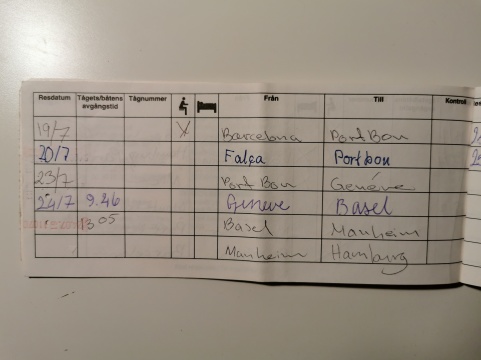 Resdatum Tågets/båtens avgångstid Tågnummer Från Till Kontroll
19/7 X Barcelona Port Bou
20/7 Falça Portbou
23/7 Port Bou Genéve
24/7 9.46 Geneve Basel
13 05 Basel Manheim
Manheim Hamburg